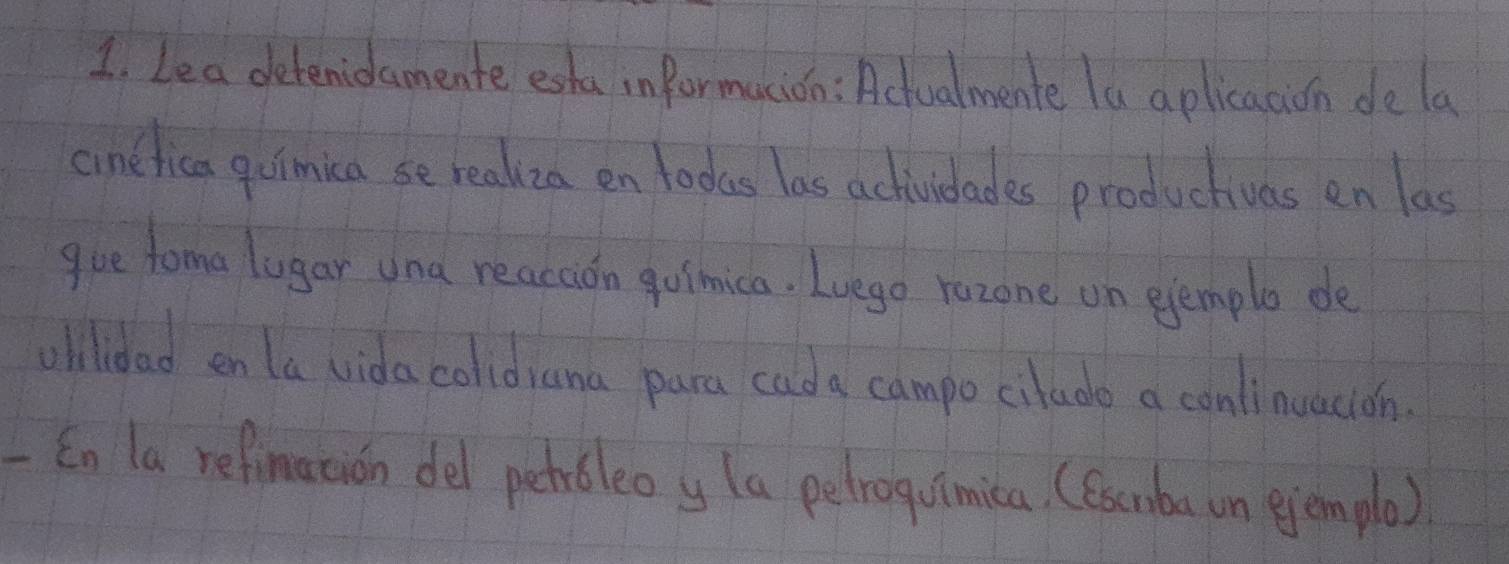 1. Lea detenidamente esta información: Actualmente la aplicación de la
cinética química se realiza en todas las actividades productivas en las
que toma lugar una reacción química. Luego razone un ejemplo de
utilidad en la vida cotidiana para cada campo citado a continuación.
- En la refinación del petróleo y la petroquímica. (Escriba un ejemplo).